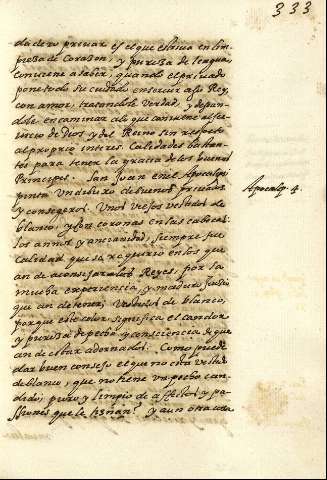 333
dadero privar es el que estriva en lim
pieza de Corazon, y pureza de lengua,
conviene a saber, quando el privado
pone todo su cuidado en servir a su Rey,
con amor, tratandole verdad, y desean
dole encaminar a lo que conviene al ser
vicio de Dios y del Reino sin respecto
al proprio interes. Calidades bastan
tes para tener la gracia de los buenos
Principes. San Juan en el Apocalipsi
pinta un debuxo de buenos privados
y consegeros. Unos viejos vestidos de
blanco, y con coronas en las cabeças
los annos y ancianidad, siempre fue
Calidad que se requirio en los que
an de aconsejar a los Reyes, por la
mucha experiencia, y maduro juicio
que an de tener, Vestidos de blanco,
porque este color significa el candor
y pureza de pecho y consciencia de que
an de estar adornados. Como puede
dar buen consejo el que no esta vestido
de blanco, que no tiene un pecho can
dido, puro y limpio de affectos y pa
ssiones que le tiñan? y aun otra cosa
Apocalip 4.